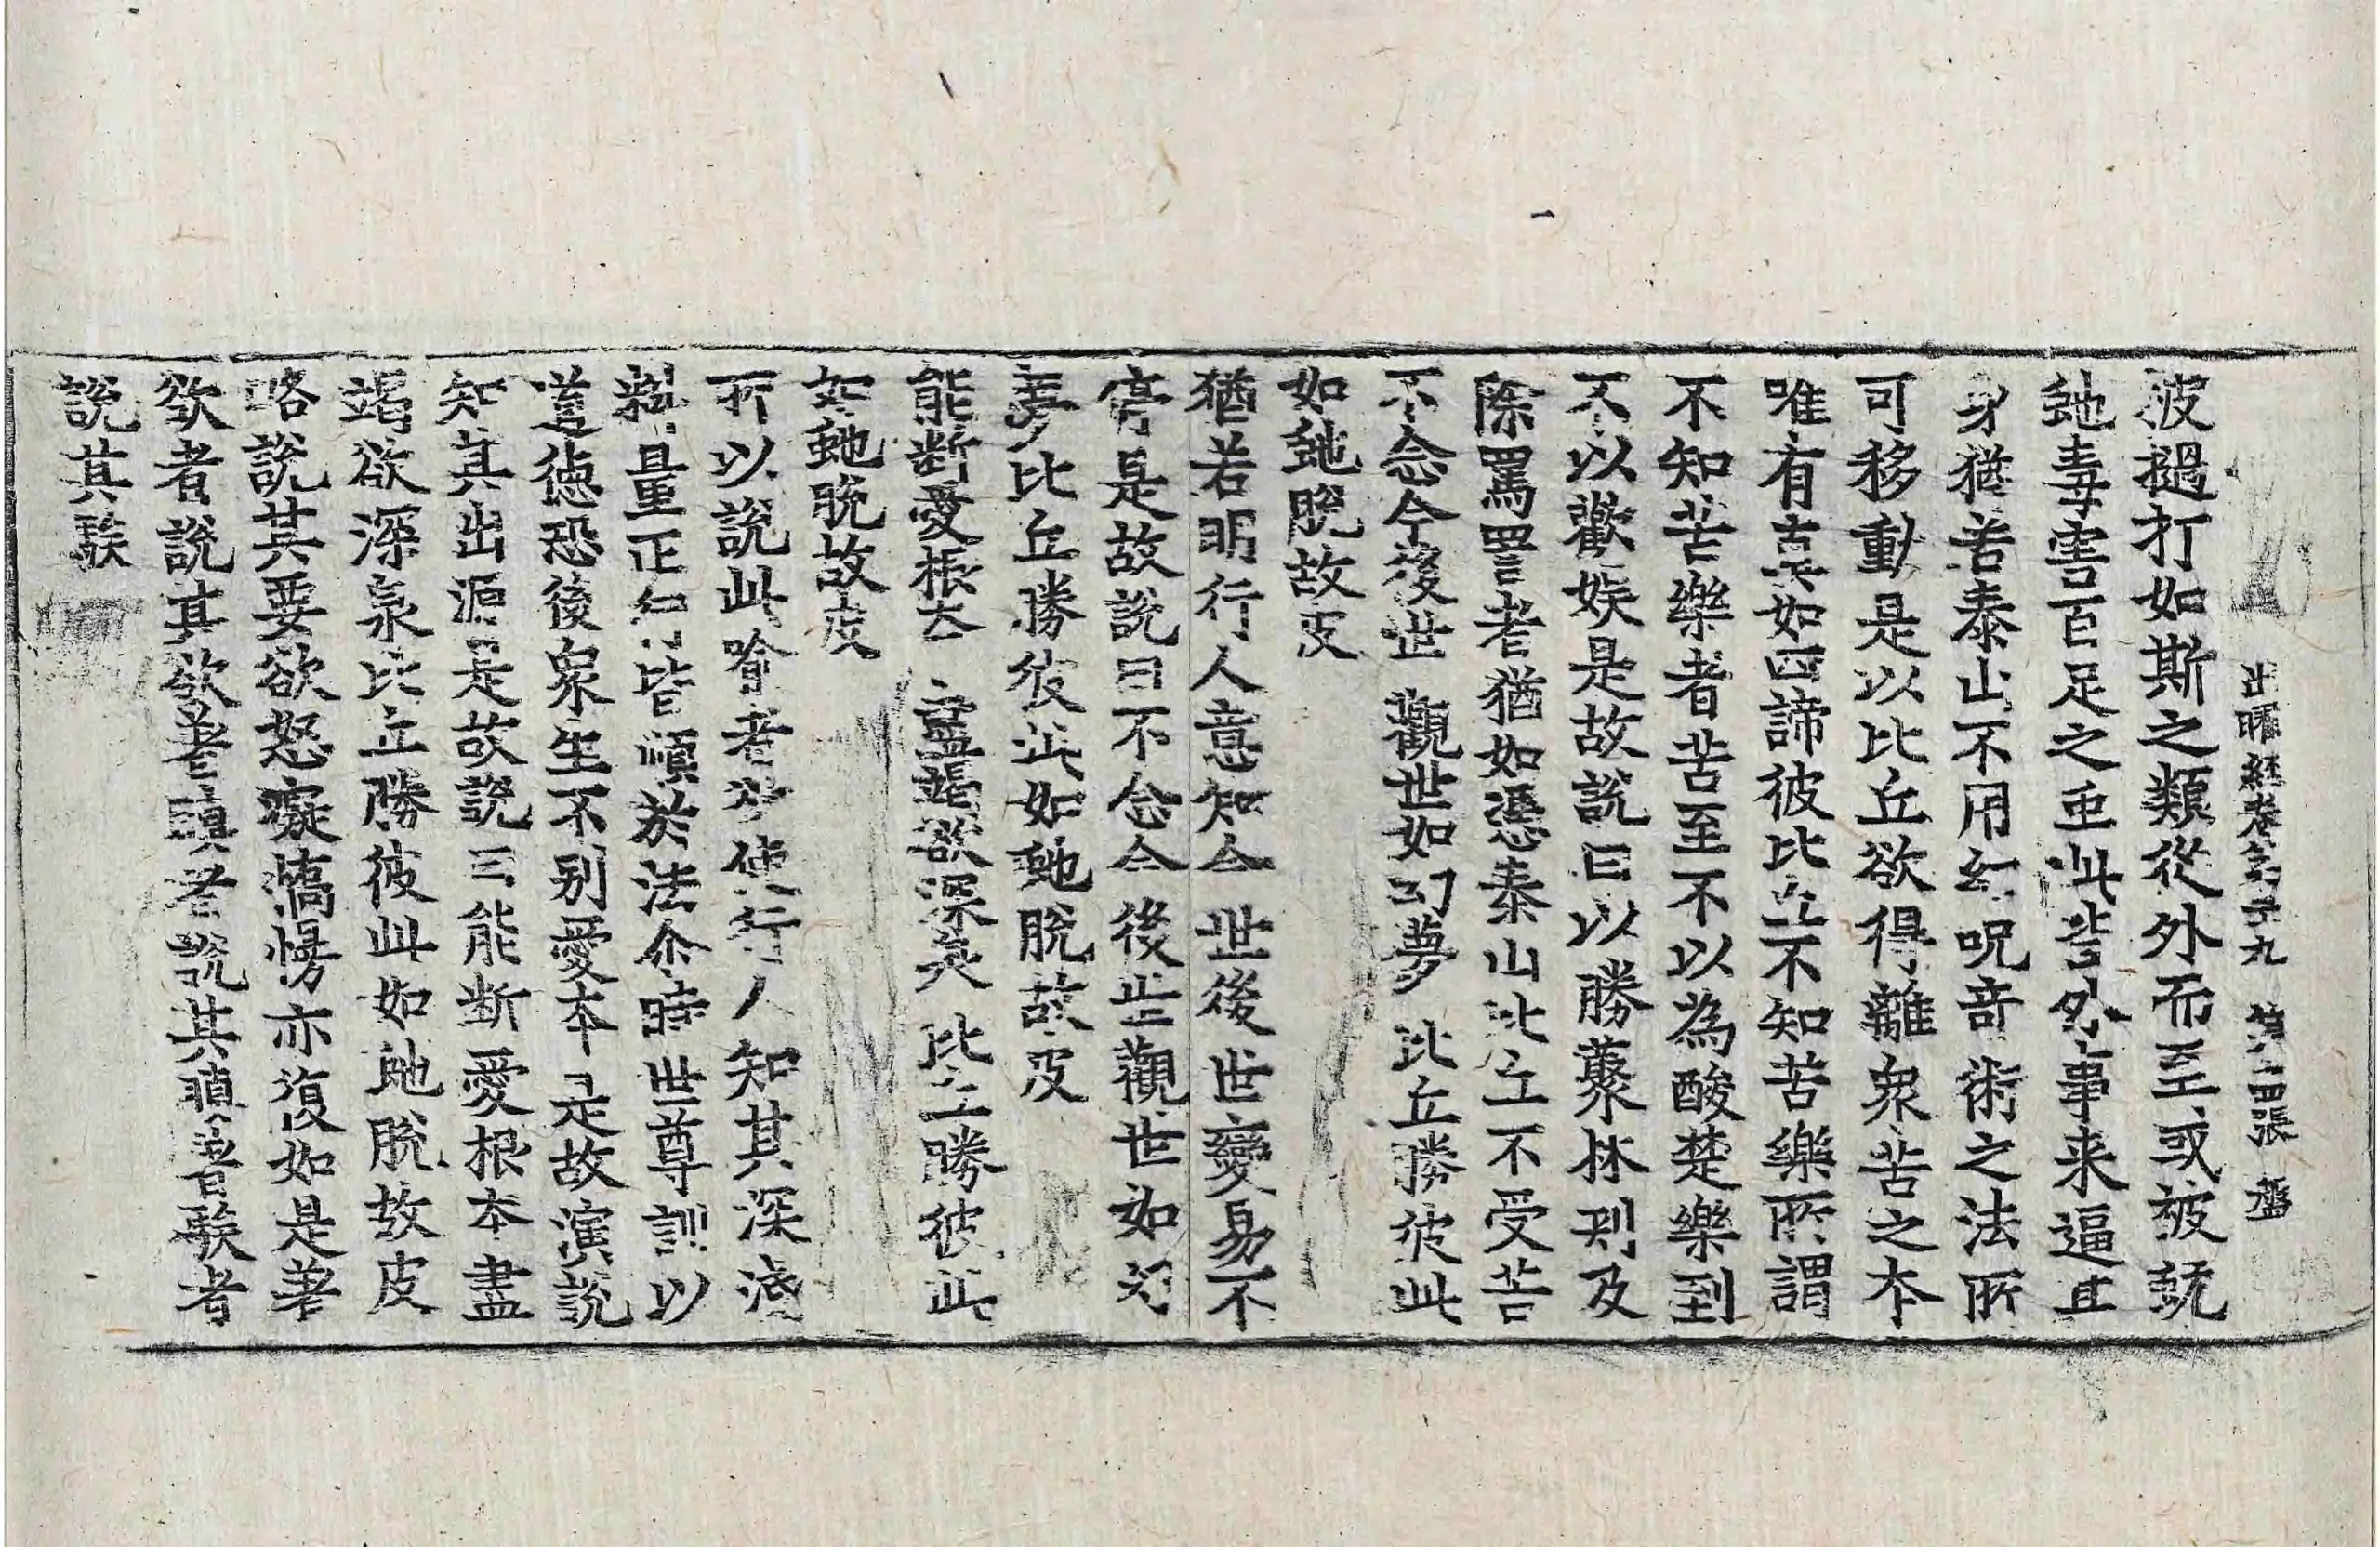 出曜経卷第二十九 第二四張 盤
彼撾打如斯之類從外而至或被蚖
虵毒害百足之虫此皆外事来逼其
身猶若泰山不用幻呪竒術之法所
可移動是以比丘欲得離衆苦之本
唯有真如四諦彼比丘不知苦樂所謂
不知苦樂者苦至不以為酸楚樂到
不以歡娱是故說曰以勝藂林刺及
除罵詈者猶如憑泰山比丘不受苦
不念今後世 觀世如幻夢 比丘勝彼此
如虵脫故皮
猶若明行人意知今世後世變易不
停是故說曰不念今後世觀世如幻
夢比丘勝彼此如虵脫故皮
能斷愛根本 盡竭欲深泉 比丘勝彼此
如虵脫故皮
所以說此喻者欲使行人知其深淺
斟量正行皆順於法爾時世尊訓以
道德恐後衆生不別愛本是故演說
知其出源是故說曰能斷愛根本盡
竭欲深泉比丘勝彼此如虵脫故皮
略說其要欲怒癡憍慢亦復如是著
欲者說其欲著瞋者說其瞋著騃者
說其騃